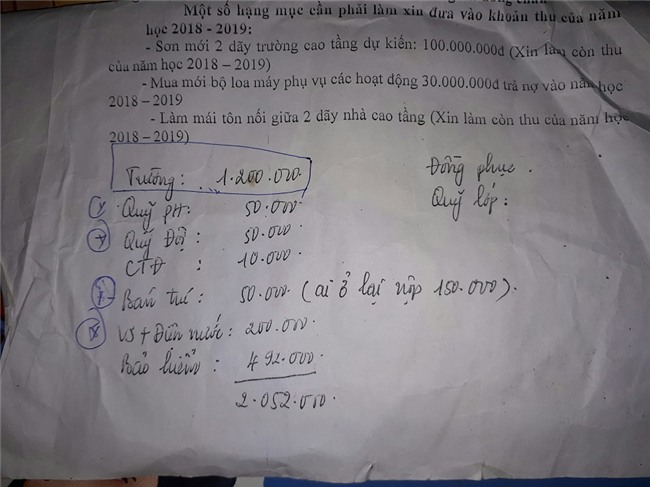 Một số hạng mục cần phải làm xin đưa vào khoản thu của năm
học 2018 - 2019:
- Sơn mới 2 dãy trường cao tầng dự kiến: 100.000.000đ (Xin làm còn thu
của năm học 2018 – 2019)
- Mua mới bộ loa máy phụ vụ các hoạt động 30.000.000đ trả nợ vào năm học
2018 – 2019
- Làm mái tôn nối giữa 2 dãy nhà cao tầng (Xin làm còn thu của năm học
2018 – 2019)
Trường: 1.200.000. Đồng phục.
Quỹ PH: 50.000 Quỹ lớp:
Quỹ Đội: 50.000.
CTĐ : 10.000.
Bán trú: 50.000 (ai ở lại nộp 150.000).
VS + Điện nước: 200.000.
Bảo hiểm: 492.000.
2.052.000.